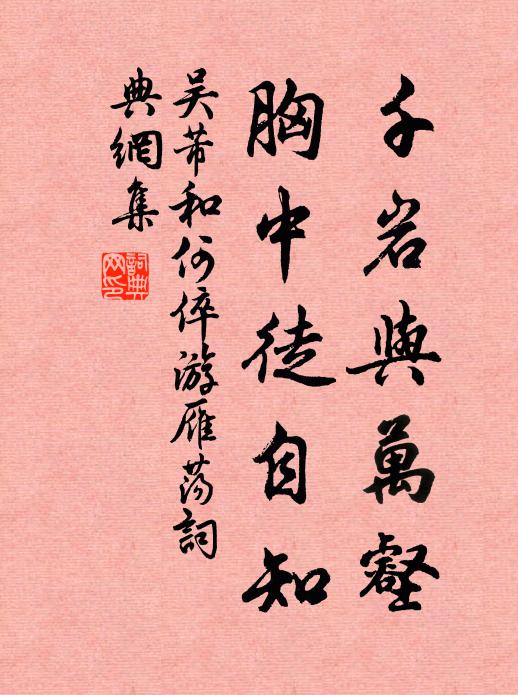 千岩與萬壑
胸中徒自知
吴芾和何倅游雁荡詞
典網集
詞典
网印